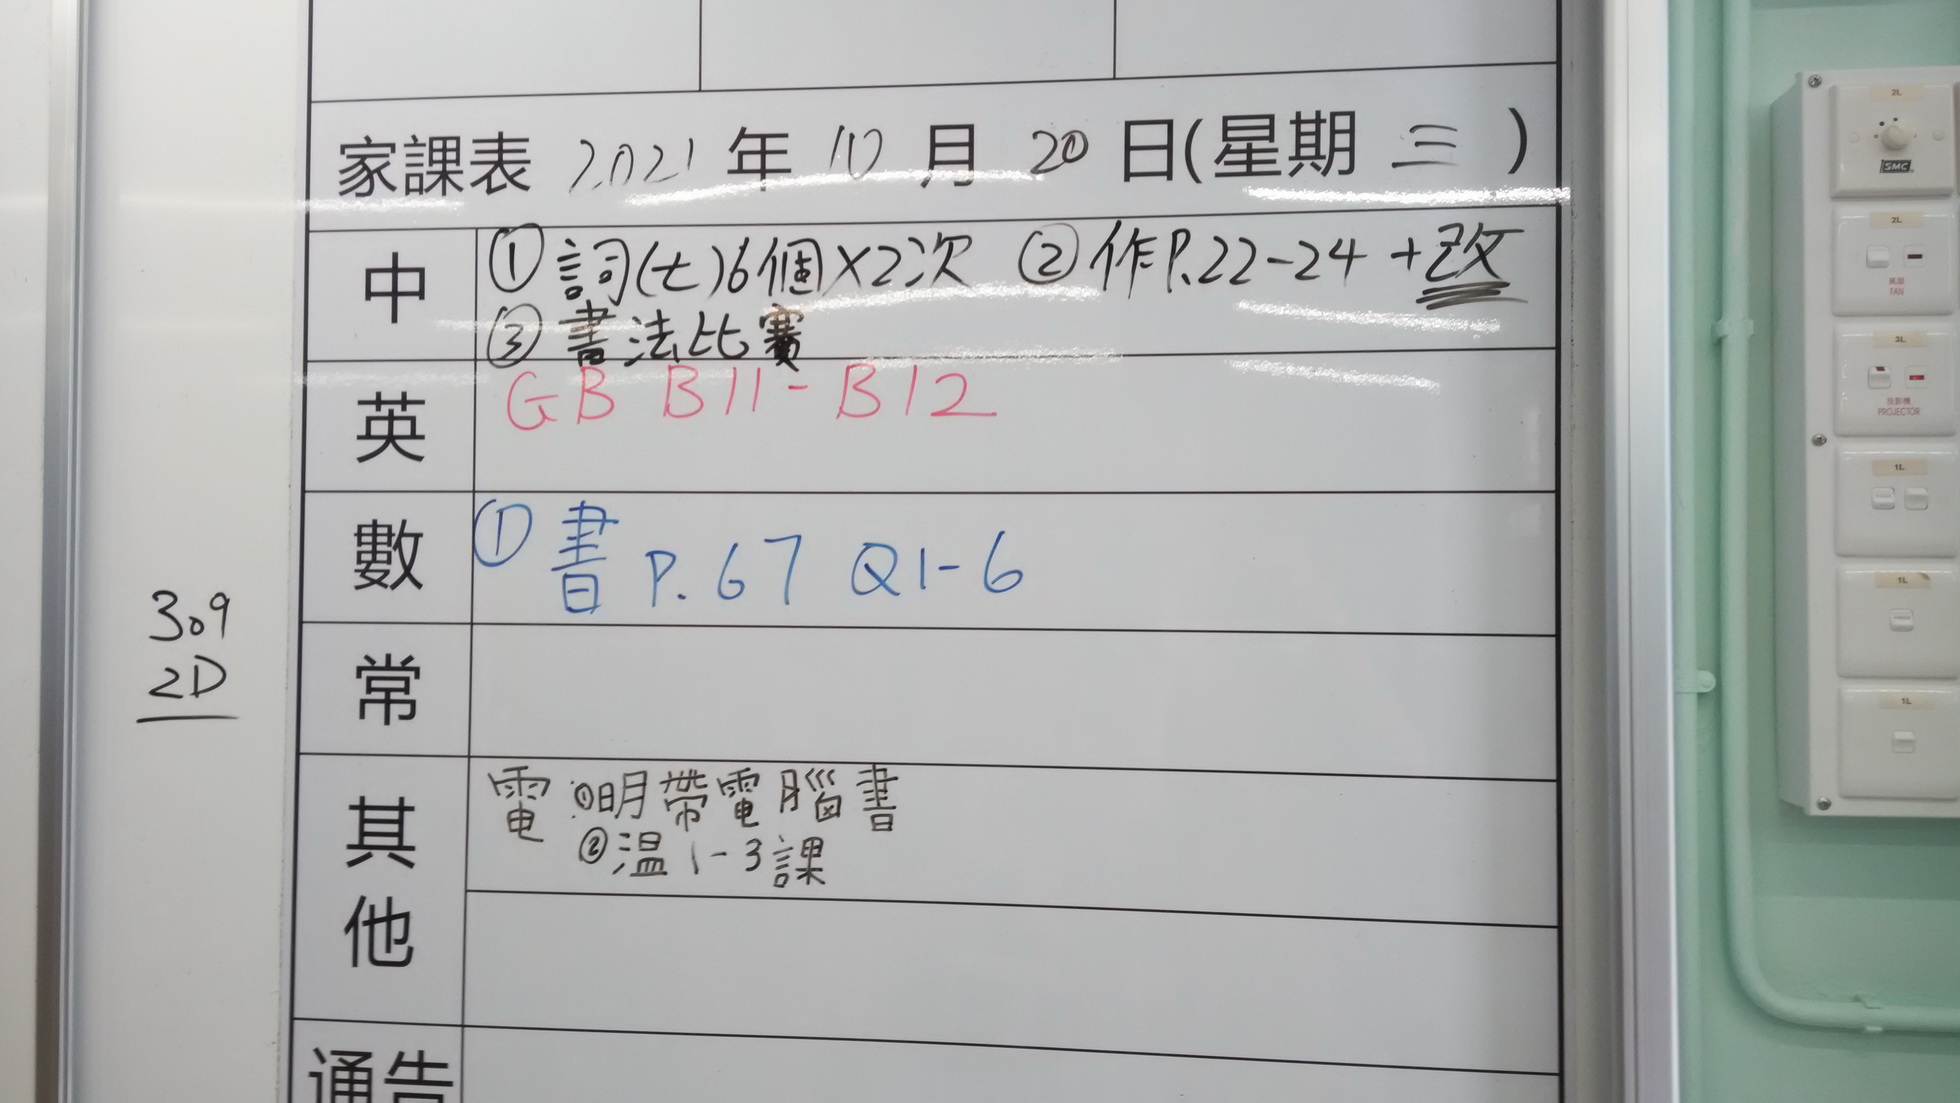 家課表 2021 年 10 月 20 日(星期 三 )
中 ①詞(七)6個×2次 ②作P.22-24 +改
③書法比賽
英 GB B11-B12
數 ① 書 P.67 Q1-6
309
2D
常
其他 電 ①明帶電腦書
②溫1-3課
通告
2L
SMC
2L
風扇
FAN
3L
投影機
PROJECTOR
1L
1L
1L